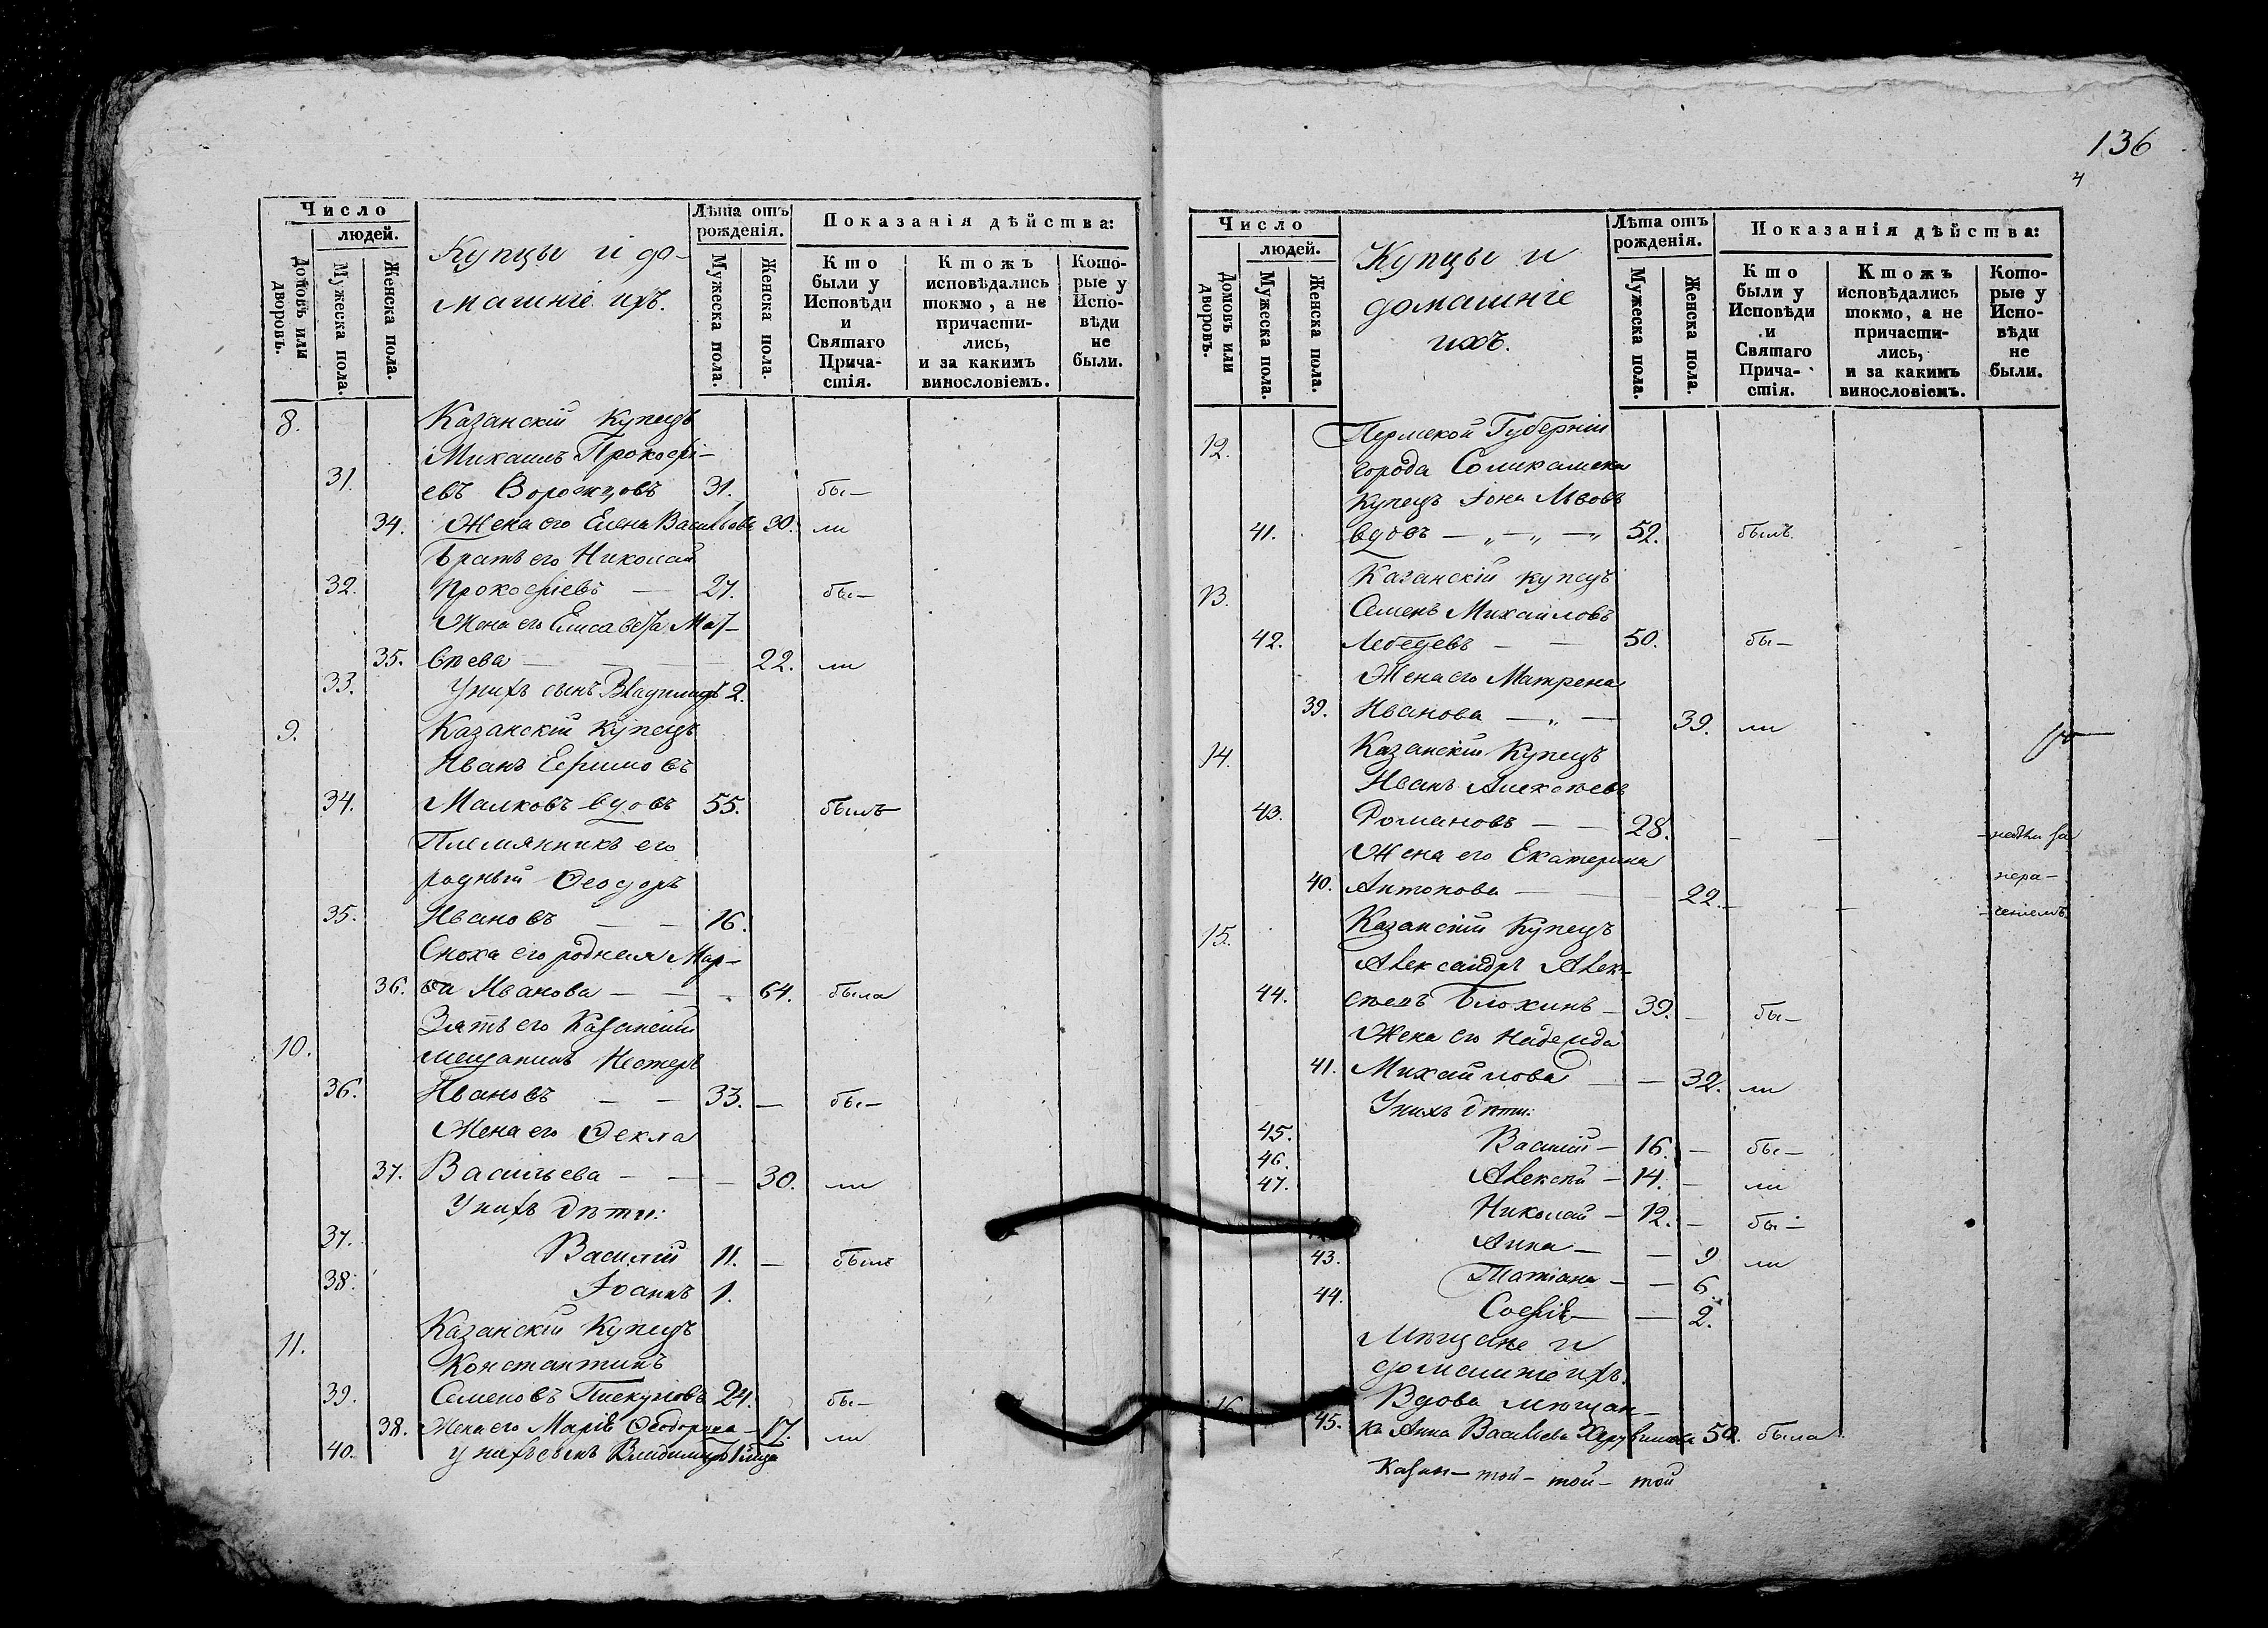 136
4
Число
людей.
Домовъ или дворовъ.
Мужеска пола.
Женска пола.
Купцы и до-
машніе ихъ.
Лѣта отъ рожденія.
Мужеска пола.
Женска пола.
Показанія дѣйства:
Кто были у Исповѣди и Святаго Прича-стія.
Ктожъ исповѣдались токмо, а не причасти-лись, и за какимъ винословіемъ.
Кото-рые у Испо-вѣди не были.
8. Казанскій Купецъ
Михаилъ Прокофі-
31. евъ Ворожцовъ 31. бы-
34. Жена его Елена Васильева 30. ли
Братъ его Николай
32. Прокофіевъ — 27. бы-
Жена его Елисавета Мат-
35. вѣева — — — 22. ли
33. У нихъ сынъ Владимиръ 2.
9. Казанскій Купецъ
Иванъ Ефимовъ
34. Малковъ вдовъ 55. былъ
Племянникъ его
родный Ѳеодоръ
35. Ивановъ — — 16.
Сноха его родная Мар-
36. ѳа Иванова — — - 64. была
Зять его Казанскій
10. мещанинъ Нестеръ
36. Ивановъ — — 33. — бы-
Жена его Ѳекла
37. Васильева — — — 30. ли
У нихъ дѣти:
37. Василій 11. — былъ
38. Іоаннъ 1.
11. Казанскій Купецъ
Константинъ
39. Семеновъ Пискуновъ 24. бы-
38. Жена его Марія Ѳедорова — 17. ли
40. У нихъ сынъ Владимиръ
Число
людей.
Домовъ или дворовъ.
Мужеска пола.
Женска пола.
Купцы и
домашніе
ихъ.
Лѣта отъ рожденія.
Мужеска пола.
Женска пола.
Показанія дѣйства:
Кто были у Исповѣди и Святаго Прича-стія.
Ктожъ исповѣдались токмо, а не причасти-лись, и за какимъ винословіемъ.
Кото-рые у Испо-вѣди не были.
12. Пермской Губерніи
города Соликамска
Купецъ Іона Львовъ
41. вдовъ — „ — „ — „ 52. былъ.
13. Казанскій купецъ
Семенъ Михайловъ
42. Лебедевъ — — 50. бы-
Жена его Матрена
39. Иванова — „ — 39. ли
14. Казанскій Купецъ
Иванъ Алексѣевъ
43. Романовъ — — 28. — — — за
Жена его Екатерина
нера-
40. Антонова — — 22. — — -ченіемъ
15. Казанскій Купецъ
Александръ Алек-
44. сѣевъ Блохинъ — 39. — бы-
Жена его Надежда
41. Михайлова — — 32. ли
У нихъ дѣти:
45. Василій — 16. — бы-
46. Алексѣй — 14. — ли
47. Николай — 12. — бы-
Анна — — 9 ли
43. Татіана — — 6.
44. Софія — — 2.
Мѣщане и
домашніе ихъ.
Вдова мѣщан-
45. ка Анна Васильева была
Казан- той- той- той